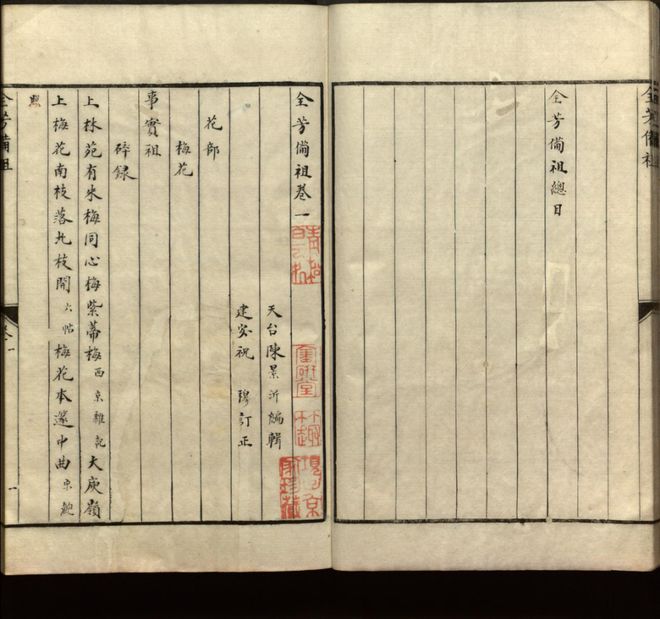 全芳備祖
全芳備祖總目
全芳備祖卷一
天台陳景沂編輯
建安祝 穆訂正
花部
梅花
事實祖
碎錄
上林苑有朱梅同心梅紫蒂梅西京雜記大庾嶺
上梅花南枝落北枝開六帖梅花本邃中曲
全芳備祖
卷一
一